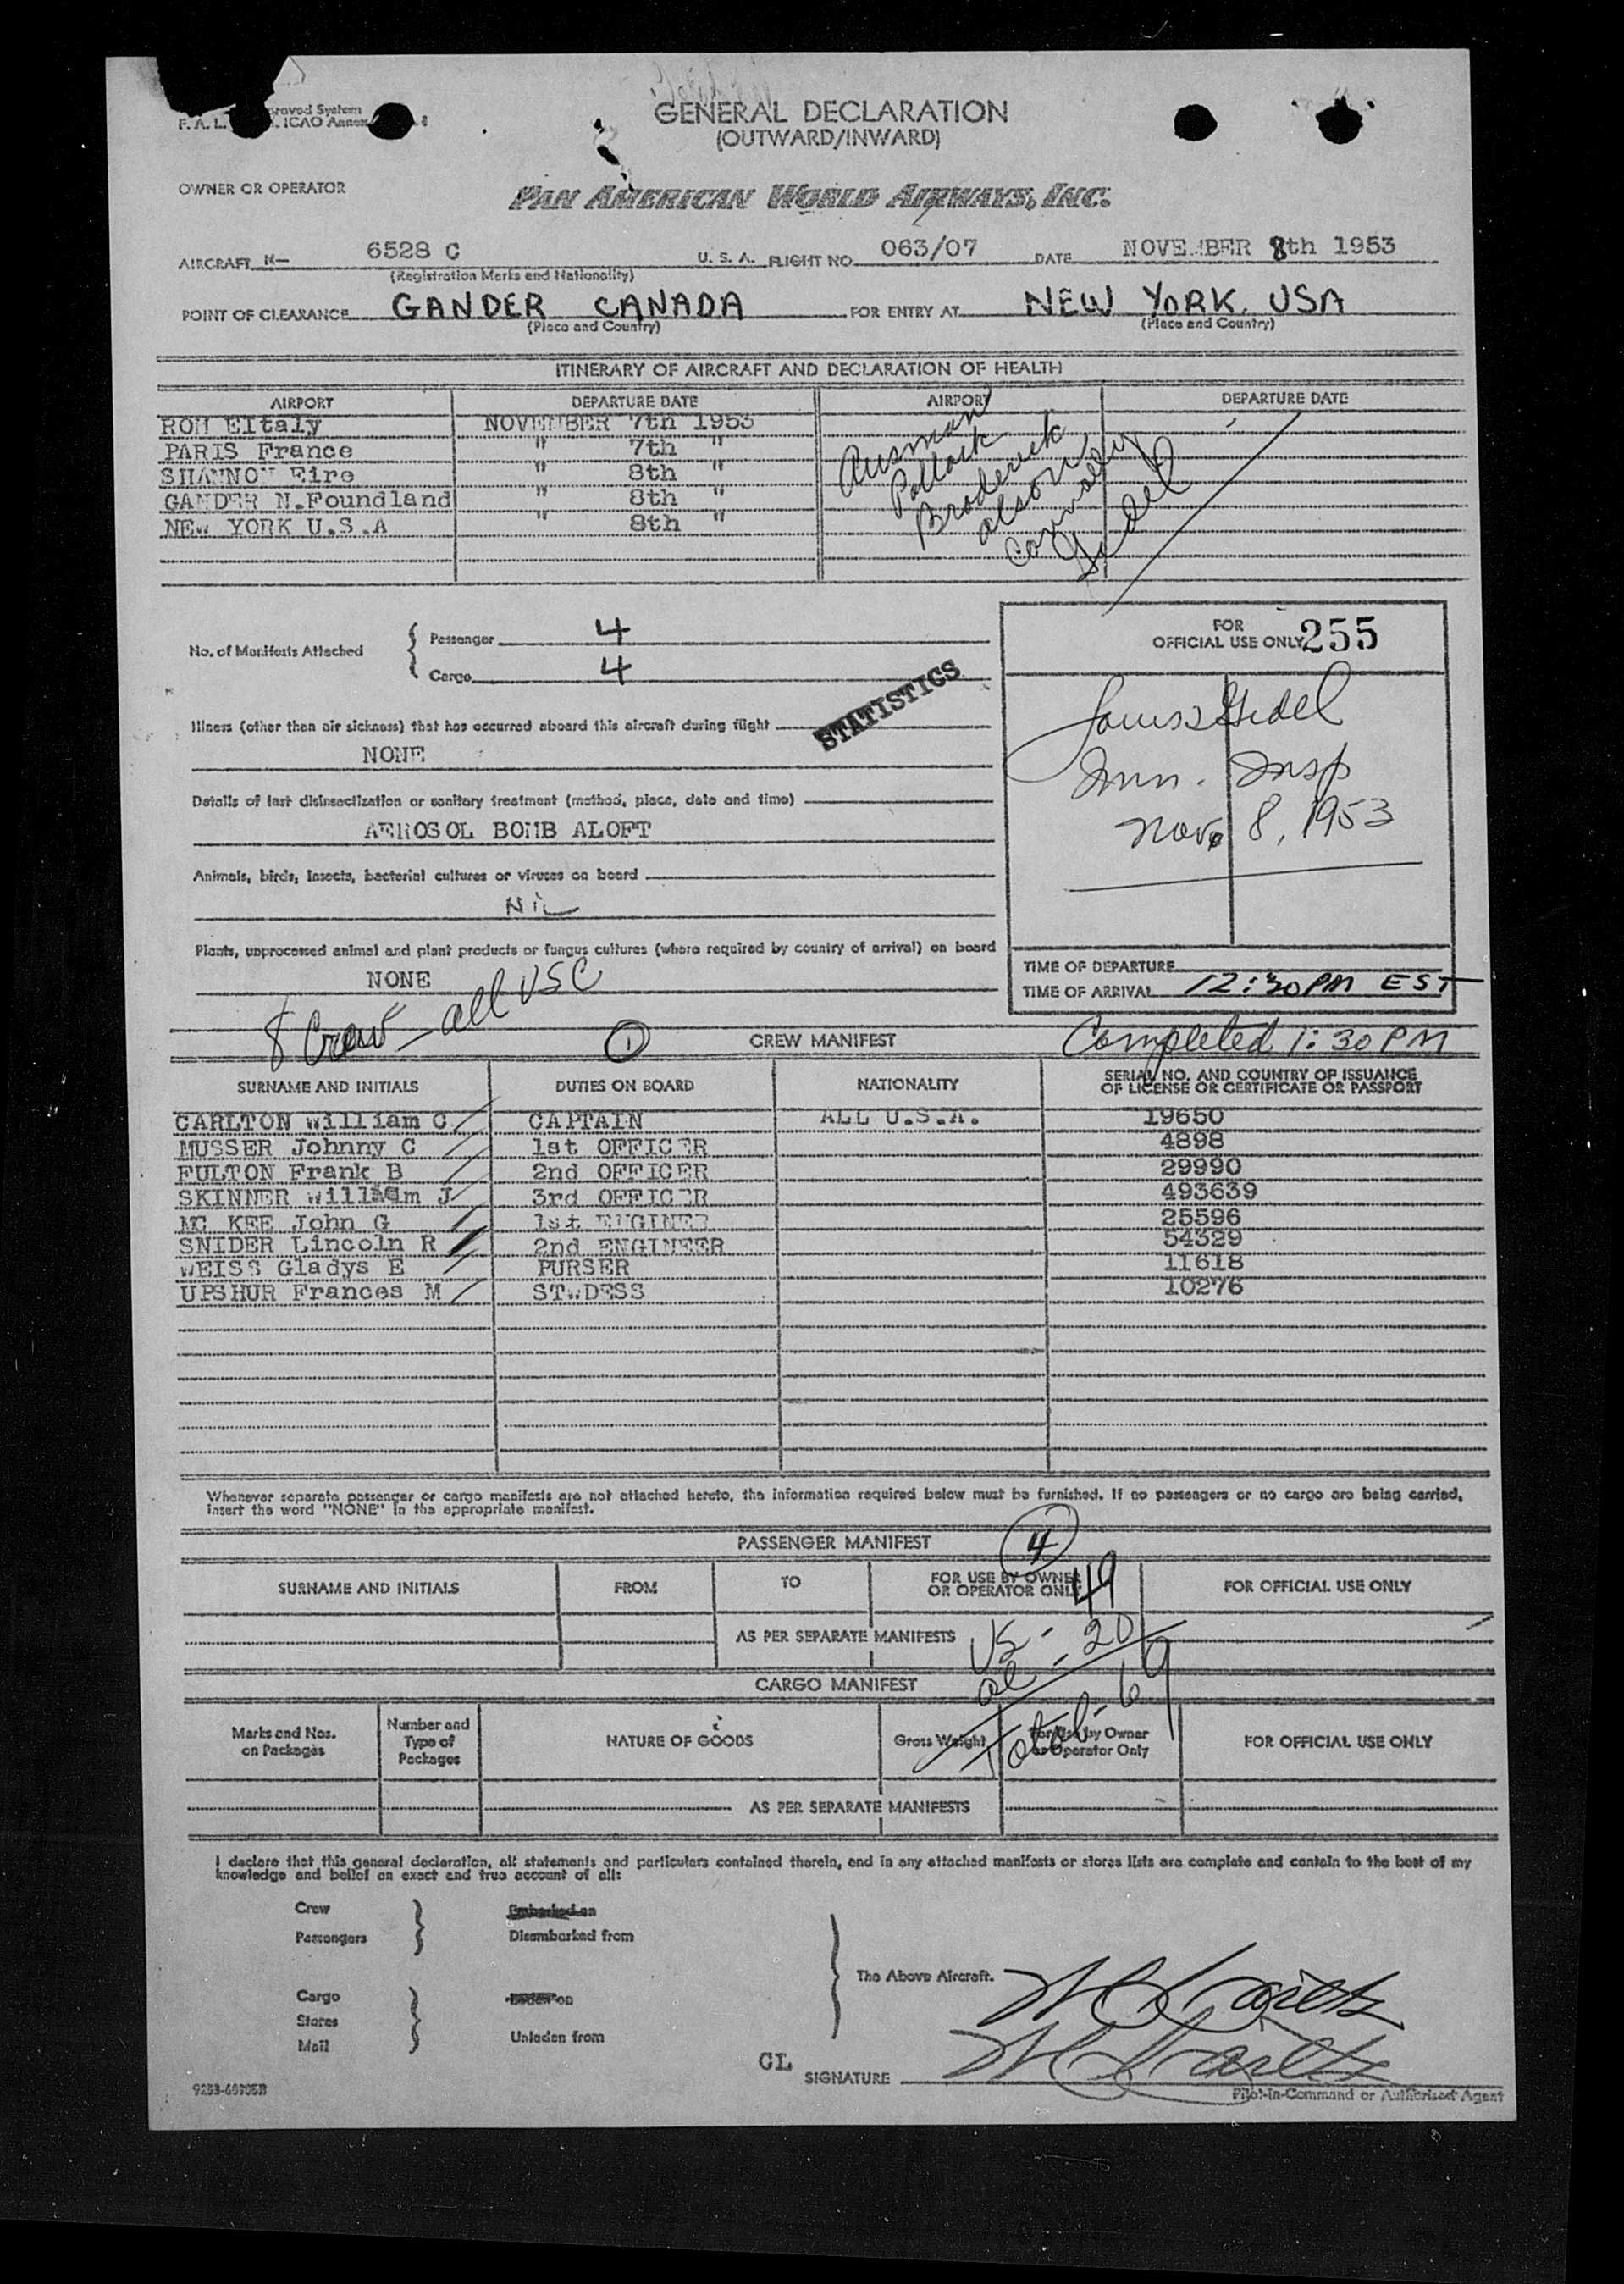 proved System
F. A. L. ICAO Annex
GENERAL DECLARATION
(OUTWARD/INWARD)
OWNER OR OPERATOR
PAN AMERICAN WORLD AIRWAYS, INC.
AIRCRAFT N- 6528 C U. S. A. FLIGHT NO. 063/07 DATE NOVEMBER 8th 1953
(Registration Marks and Nationality)
POINT OF CLEARANCE GANDER CANADA FOR ENTRY AT NEW YORK. USA
(Place and Country) (Place and Country)
ITINERARY OF AIRCRAFT AND DECLARATION OF HEALTH
AIRPORT DEPARTURE DATE AIRPORT DEPARTURE DATE
ROM EItaly NOVEMBER 7th 1953
PARIS France " 7th "
SHANNON Eire " 8th "
GANDER N.Foundland " 8th "
NEW YORK U.S.A " 8th "
Ausman
Pollack
Broderick
Olson
Connally
Gidel
No. of Manifests Attached
Passenger 4
Cargo 4
FOR
OFFICIAL USE ONLY 255
STATISTICS
Louis Gidel
Imm. Insp
Nov. 8, 1953
Illness (other than air sickness) that has occurred aboard this aircraft during flight
NONE
Details of last disinsectization or sanitary treatment (method, place, date and time)
AEROSOL BOMB ALOFT
Animals, birds, insects, bacterial cultures or viruses on board
NiL
Plants, unprocessed animal and plant products or fungus cultures (where required by country of arrival) on board
NONE
TIME OF DEPARTURE
TIME OF ARRIVAL 12:30 PM EST
8 Crew - all USC
1 CREW MANIFEST Completed 1:30 PM
SURNAME AND INITIALS DUTIES ON BOARD NATIONALITY SERIAL NO. AND COUNTRY OF ISSUANCE
OF LICENSE OR CERTIFICATE OR PASSPORT
CARLTON William C CAPTAIN ALL U.S.A. 19650
MUSSER Johnny C 1st OFFICER 4898
FULTON Frank B 2nd OFFICER 29990
SKINNER William J 3rd OFFICER 493639
MC KEE John G 1st ENGINEE 25596
SNIDER Lincoln R 2nd ENGINEER 54329
WEISS Gladys E PURSER 11618
UPSHUR Frances M STWDESS 10276
Whenever separate passenger or cargo manifests are not attached hereto, the information required below must be furnished. If no passengers or no cargo are being carried,
insert the word "NONE" in the appropriate manifest.
PASSENGER MANIFEST 4
SURNAME AND INITIALS FROM TO FOR USE BY OWNER
OR OPERATOR ONLY FOR OFFICIAL USE ONLY
49
AS PER SEPARATE MANIFESTS
US - 20
al -
Total - 69
CARGO MANIFEST
Marks and Nos.
on Packages
Number and
Type of
Packages
NATURE OF GOODS
Gross Weight
For Use by Owner
or Operator Only
FOR OFFICIAL USE ONLY
AS PER SEPARATE MANIFESTS
I declare that this general declaration, all statements and particulars contained therein, and in any attached manifests or stores lists are complete and contain to the best of my
knowledge and belief an exact and true account of all:
Crew Embarked on
Passengers Disembarked from
The Above Aircraft.
Cargo Laden on
Stores
Mail Unladen from
CL SIGNATURE
Pilot-in-Command or Authorised Agent